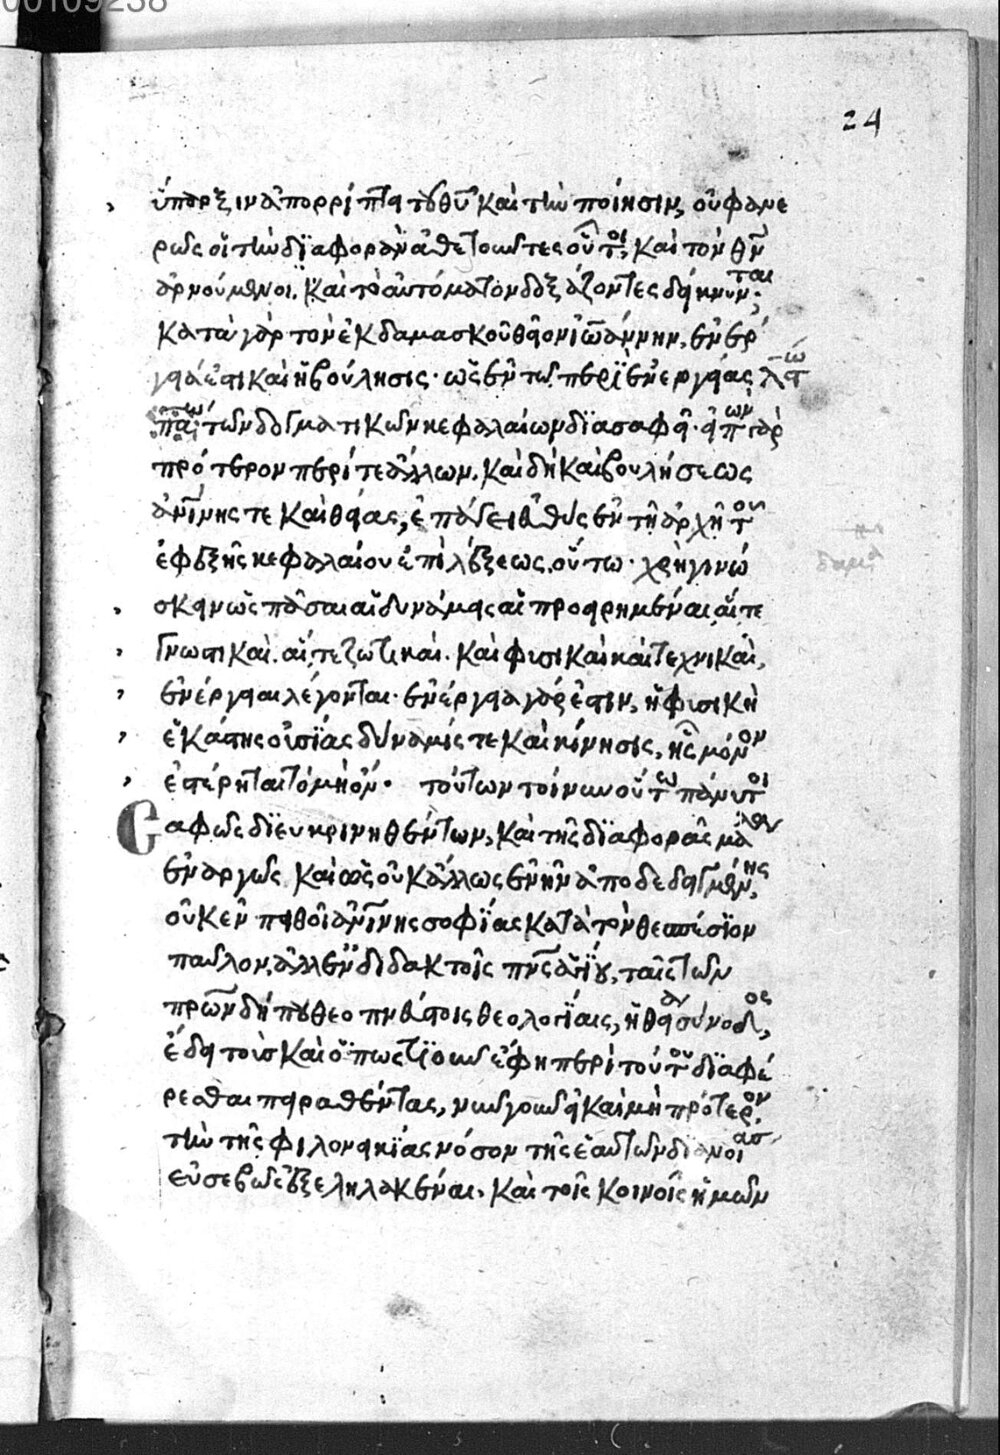 00109238
24
ὕπαρξιν ἀπορρίπτει τοῦ θῦ καὶ τὴν ποίησιν, οὐ φανε
ρῶς οἱ τὴν διαφορὰν ἀθετοῦντες οὗτοι, καὶ τὸν θν
ἀρνούμενοι. καὶ τὸ αὐτόματον δοξάζοντες δείκνυνται;
κατὰ γὰρ τὸν ἐκ δαμασκοῦ θεῖον ἰωάννην, ἐνέρ
γειά ἐστι καὶ ἡ βούλησις· ὡς ἐν τῷ περὶ ἐνεργείας
τῶν δογματικῶν κεφαλαίων διασαφεῖ· εἰπὼν γὰρ
πρότερον περί τε ἄλλων. καὶ δὴ καὶ βουλήσεως
ἀνίνης τε καὶ θείας, ἐπάγει εὐθὺς ἐν τῇ ἀρχῇ τοῦ
ἐφεξῆς κεφαλαίου ἐπὶ λέξεως. οὕτω· χρὴ γινώ
σκειν ὡς πᾶσαι αἱ δυνάμεις αἱ προειρημέναι, αἵ τε
γνωστικαὶ. αἵ τε ζωτικαί. καὶ φυσικαὶ καὶ τεχνικαὶ,
ἐνέργειαι λέγονται· ἐνέργεια γάρ ἐστιν, ἡ φυσικὴ
ἑκάστης οὐσίας δύναμίς τε καὶ κίνησις, ἧς μόνον
ἐστέρηται τὸ μὴ ὄν· τούτων τοίνυν οὕτω πάνυ τοι
Σαφῶς διευκρινηθέντων, καὶ τῆς διαφορᾶς μάλα
ἐναργῶς καὶ ὡς οὐκ ἄλλως ἐνῆν ἀποδεδειγμένης,
οὐκ ἐν πειθοῖ ἀνίνης σοφίας κατὰ τὸν θεσπέσιον
παῦλον, ἀλλ' ἐν διδακτοῖς πνς ἁγίου, ταῖς τῶν
πρων δήπου θεοπνεύστοις θεολογίαις, ἡ θεία σύνοδος,
ἔδει τοὺς καὶ ὅπως τισοῦν ἔφη περὶ τούτου διαφέ
ρεσθαι πειραθέντας, νῦν γοῦν εἰ καὶ μὴ πρότερον
τὴν τῆς φιλονεικίας νόσον τῆς ἑαυτῶν διανοίας
εὐσεβῶς ἐξεληλακέναι. καὶ τοῖς κοινοῖς ἡμῶν